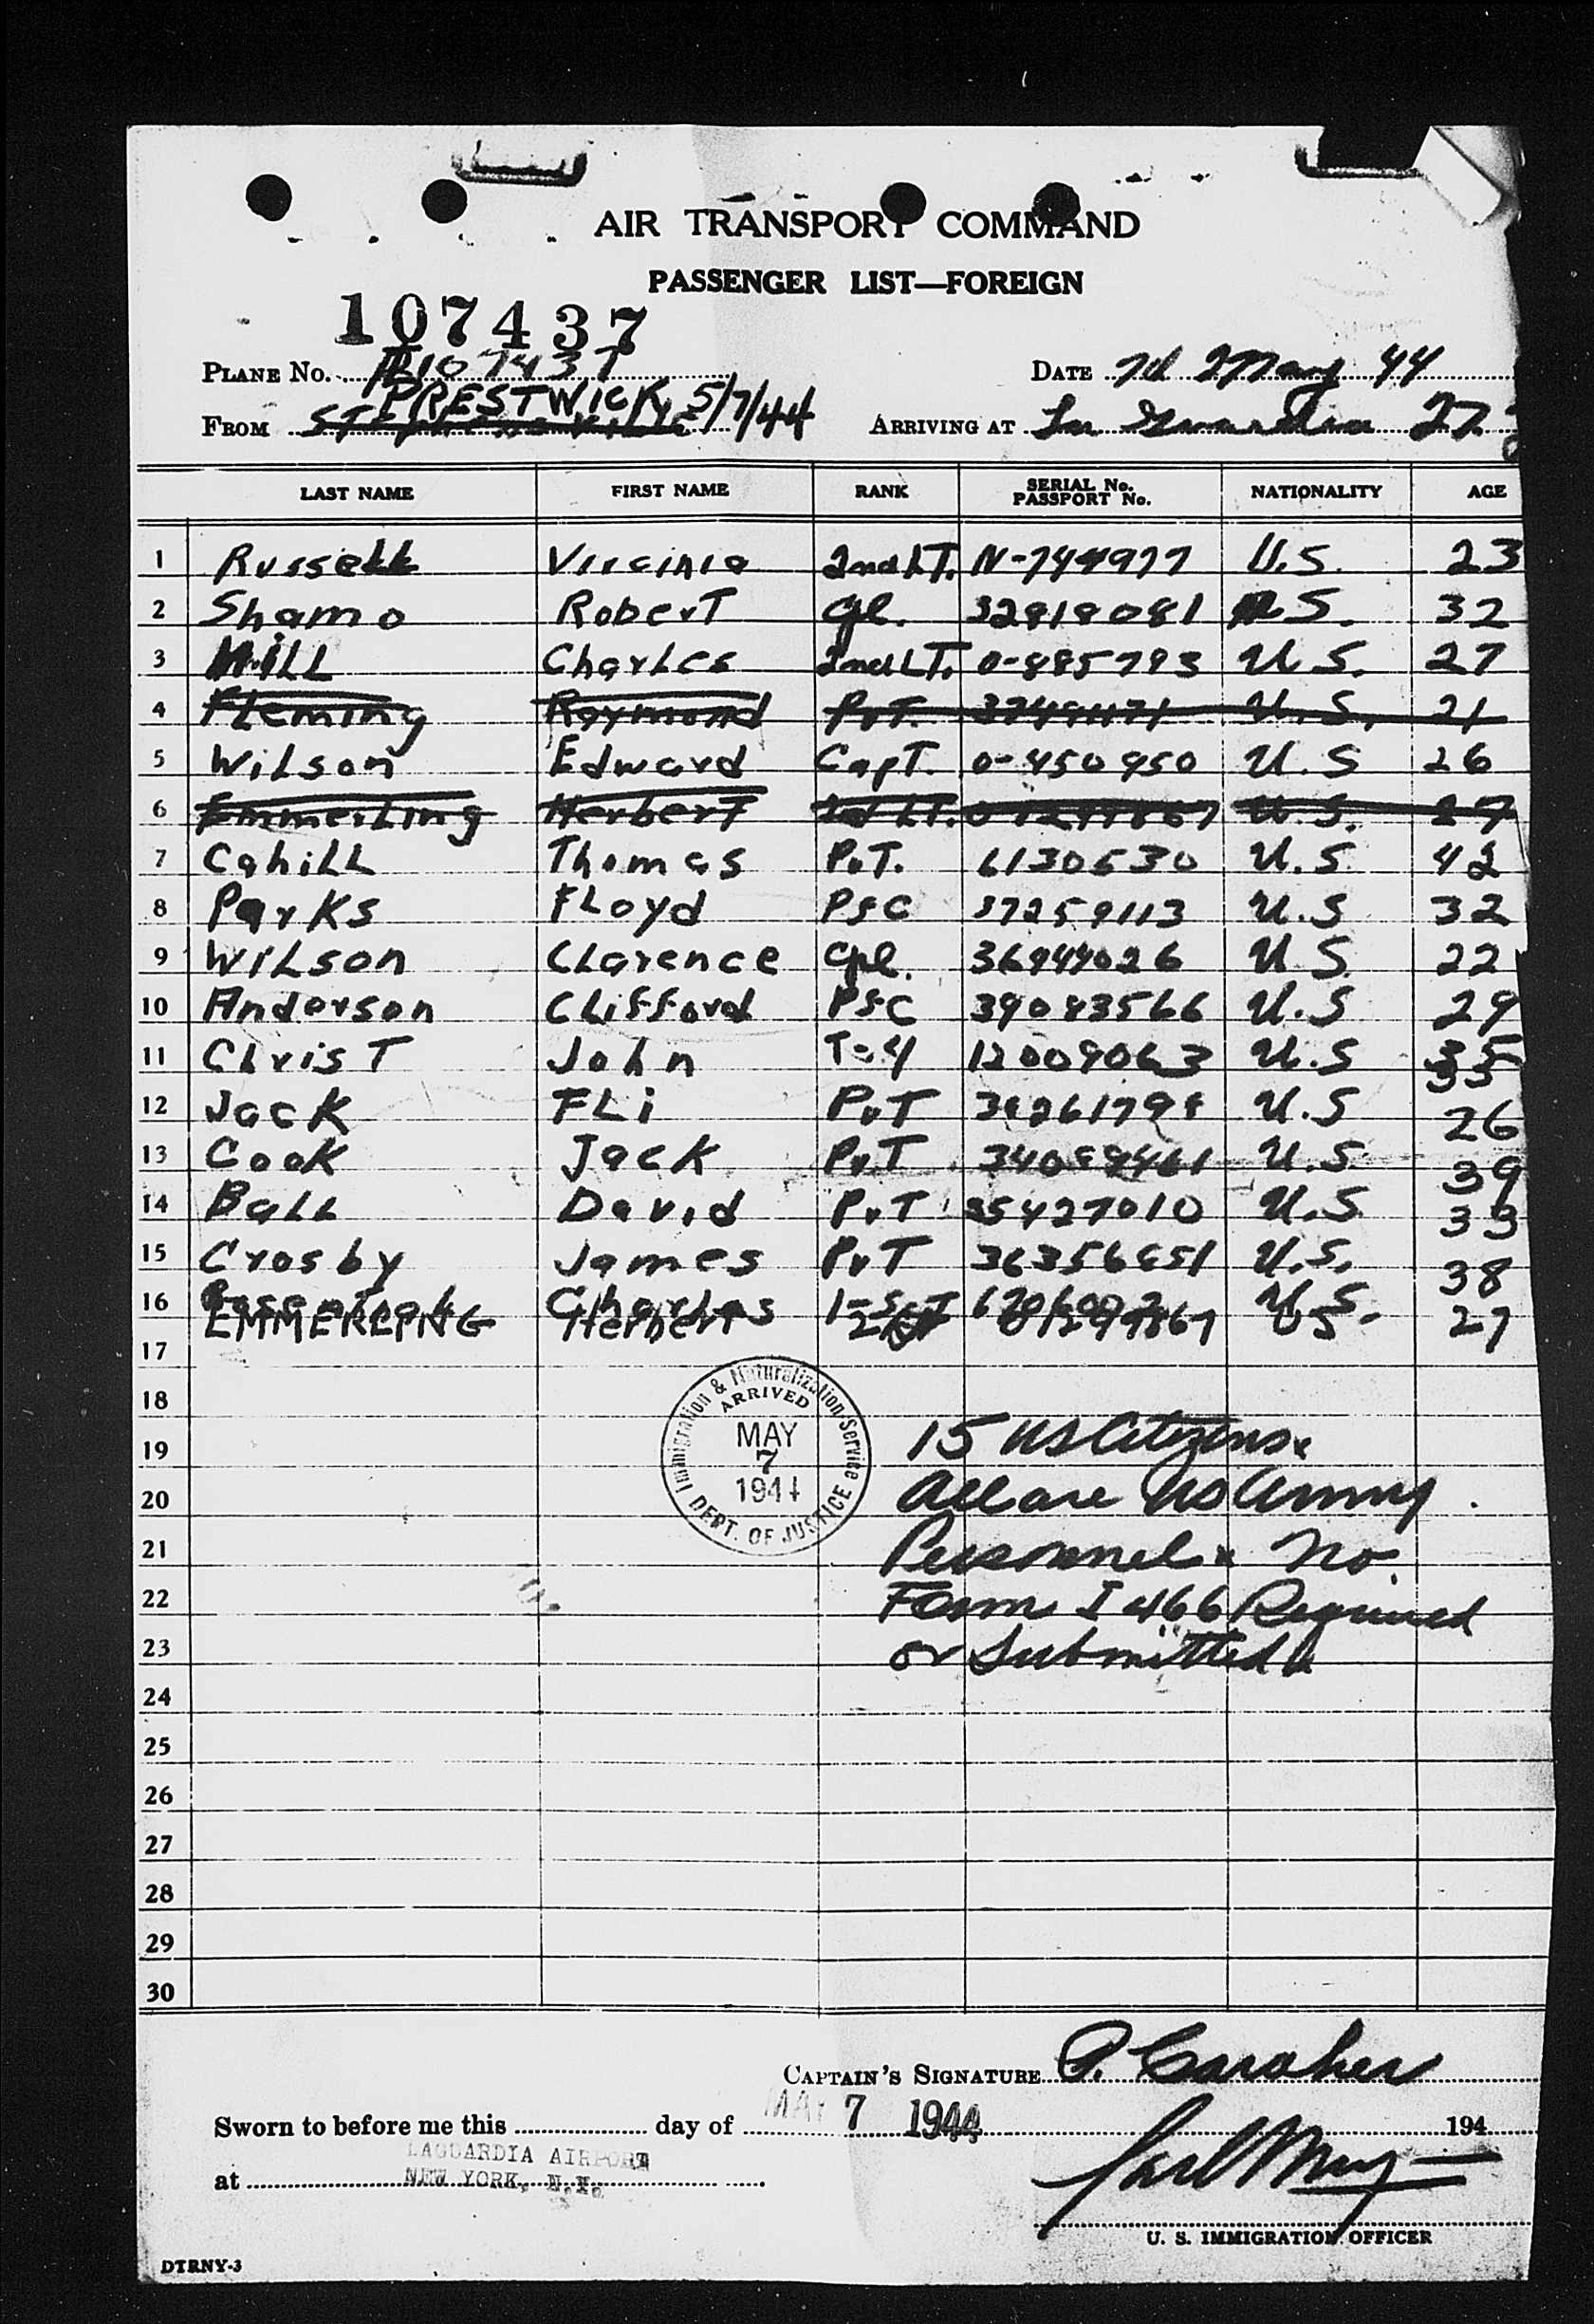 AIR TRANSPORT COMMAND
PASSENGER LIST—FOREIGN
107437
PLANE No. 107437 DATE 7th May 44
PRESTWICK 5/7/44
FROM ARRIVING AT La Guardia
LAST NAME FIRST NAME RANK SERIAL No. PASSPORT No. NATIONALITY AGE
1 Russell Virginia 2nd LT. N-744977 U.S. 23
2 Shamo Robert Cpl. 32919081 U.S. 32
3 Hill Charles 2nd LT. 0-885793 U.S. 27
4 Fleming Raymond PvT. U.S. 21
5 Wilson Edward CapT. 0-450950 U.S 26
6 Emmerling Herbert 2nd LT. U.S. 27
7 Cahill Thomas PvT. 6130530 U.S. 42
8 Parks Floyd Pfc 37259113 U.S 32
9 Wilson Clarence Cpl. 36944026 U.S. 22
10 Anderson Clifford Pfc 39093566 U.S 29
11 ChrisT John T-4 12009063 U.S 35
12 Jack FLi PvT U.S 26
13 Cook Jack PvT 34089461 U.S. 39
14 Ball David PvT 35427010 U.S. 33
15 Crosby James PvT 36356851 U.S. 38
16 Charles U.S.
EMMERLING Herbert US 27
17
18
19 15 US Citizens.
20 All are US Army
21 Personnel. No.
22 Form I 466 Required
23 or Submitted
24
25
26
27
28
29
30
Immigration & Naturalization Service
ARRIVED
MAY
7
1944
DEPT. OF JUSTICE
CAPTAIN'S SIGNATURE P. Caraher
Sworn to before me this day of MAY 7 1944 194
LAGUARDIA AIRPORT
at NEW YORK, N.Y.
U. S. IMMIGRATION OFFICER
DTRNY-3